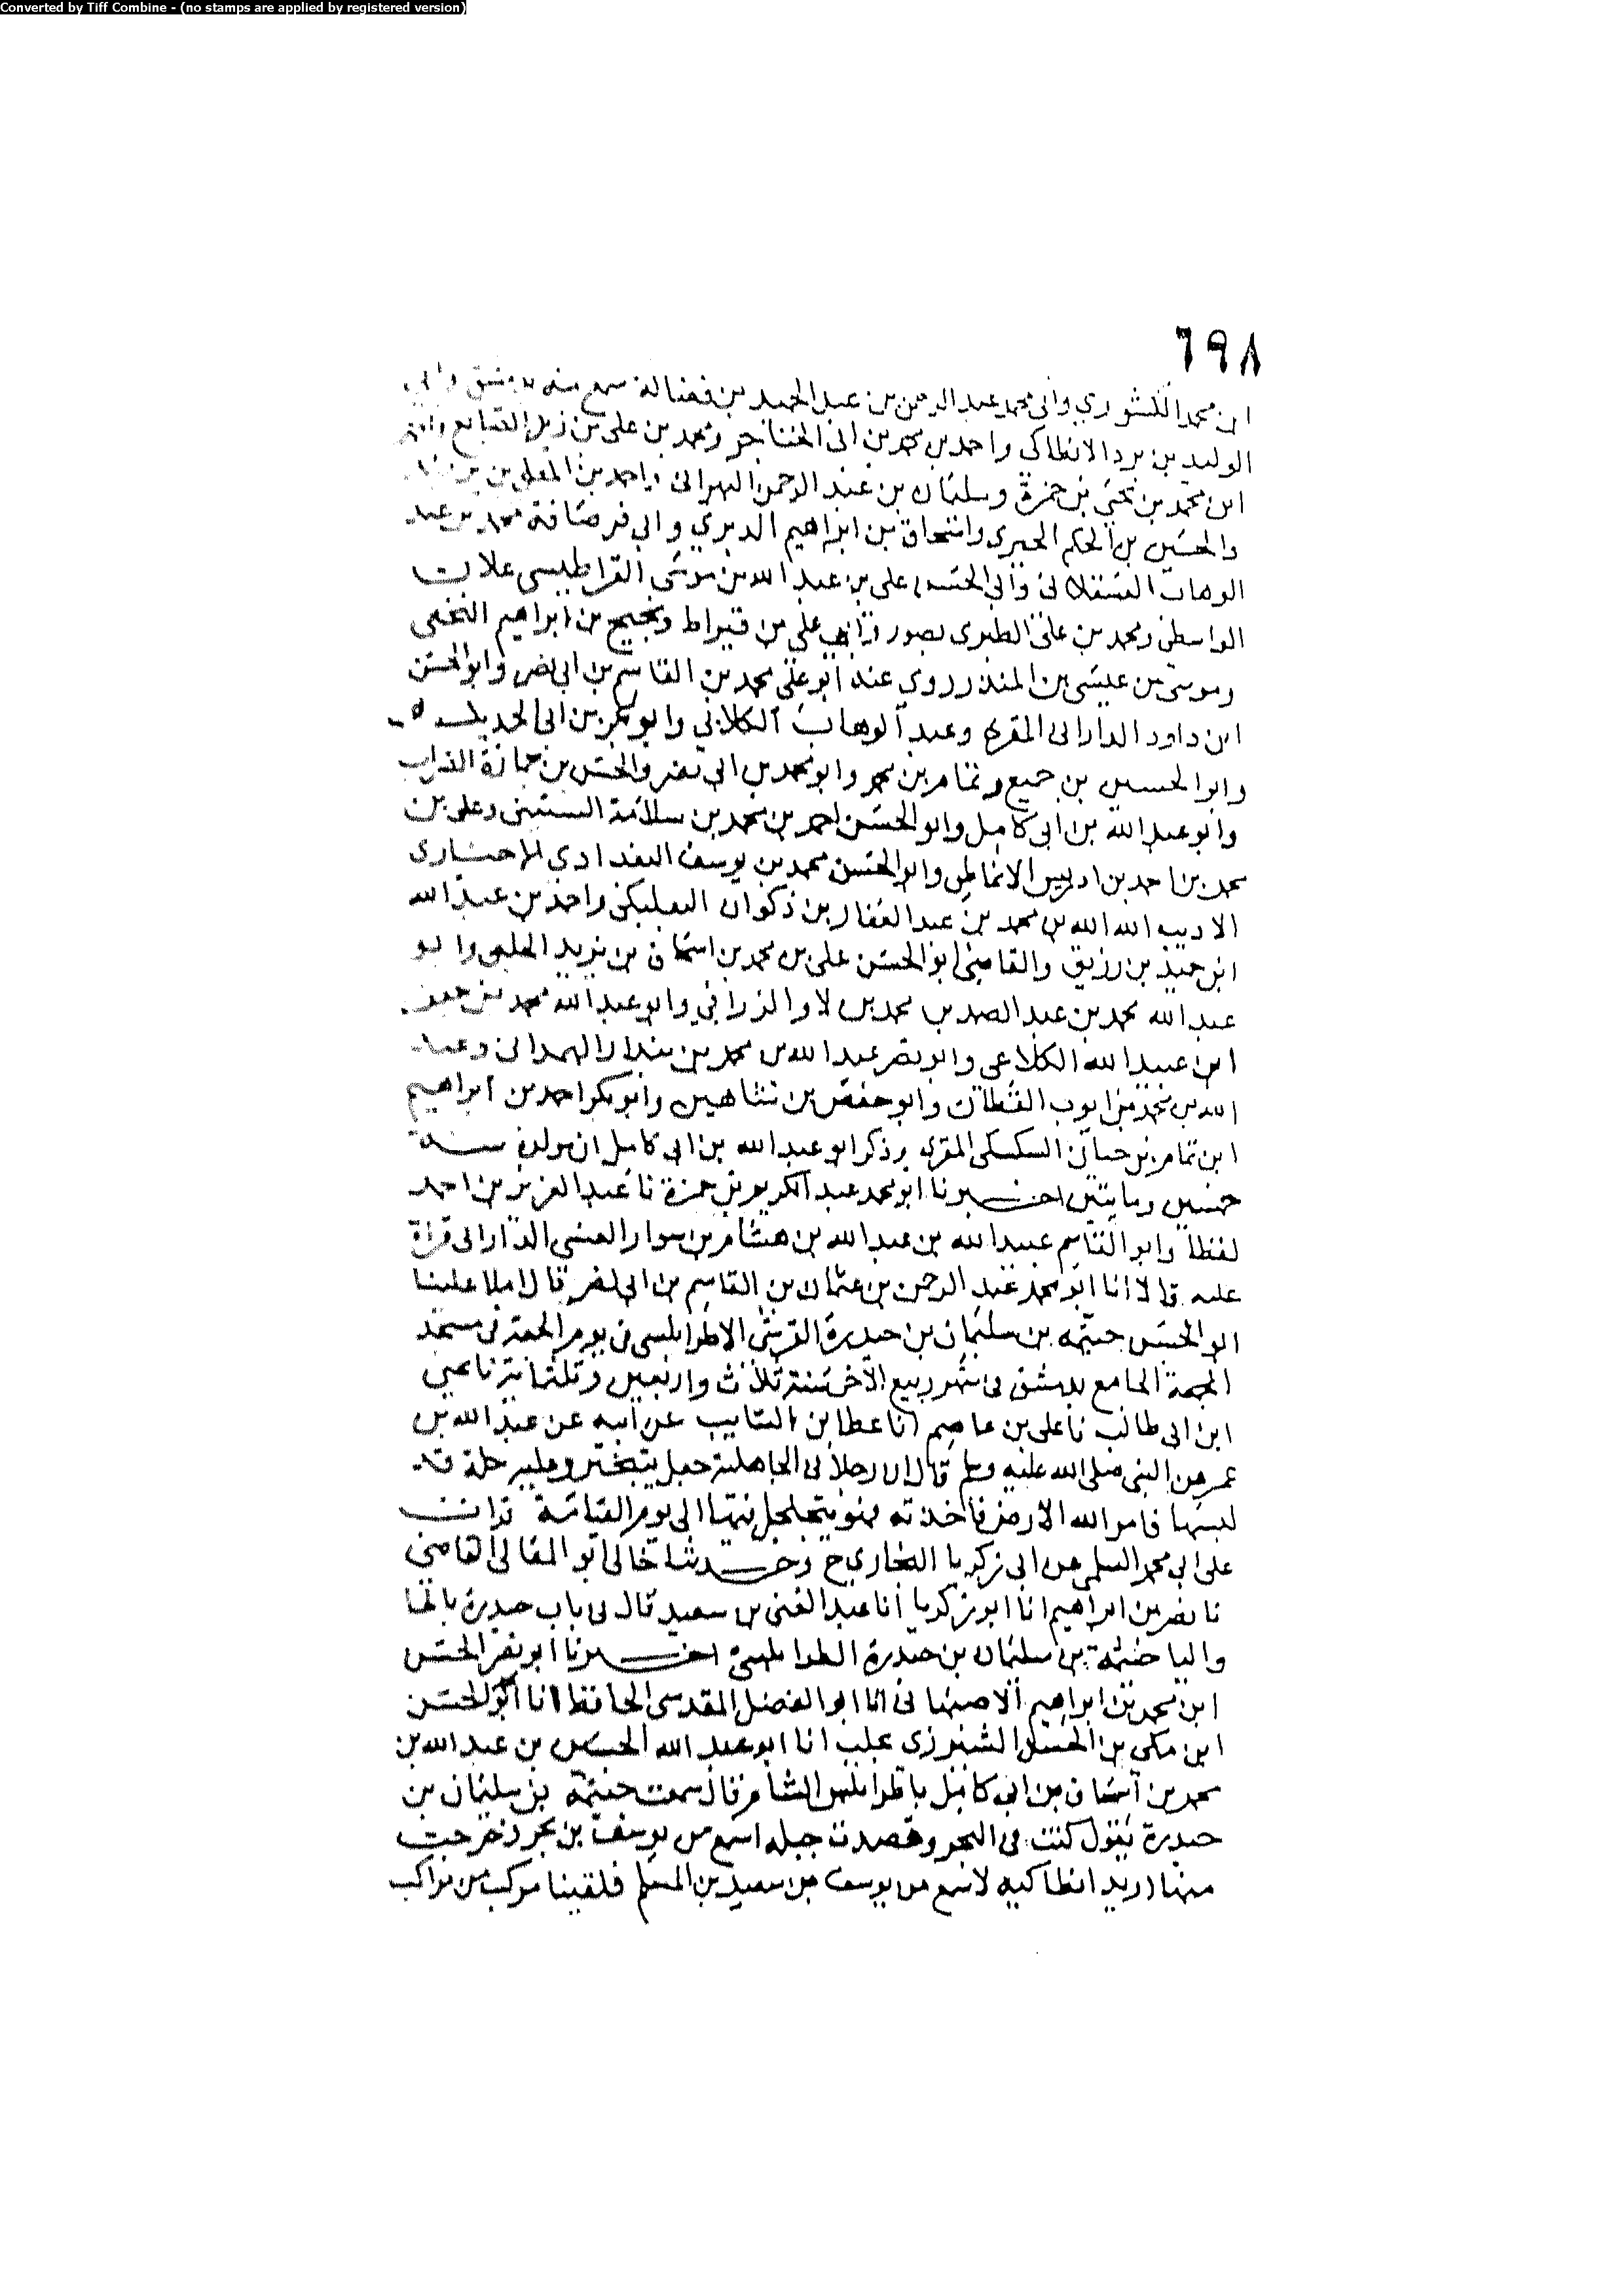 Converted by Tiff Combine - (no stamps are applied by registered version)
٦٩٨
ابن محمد الكشوري وابي محمد عبد الرحمن بن عبد الحميد بن فضالة سمع منه بدمشق وابي
الوليد بن برد الانطاكي واحمد بن محمد بن ابي الخناجر ومحمد بن علي بن زيد الصايغ
ابن محمد بن يحيى بن حمزة وسليمان بن عبد الرحمن البهراني واحمد بن المعلى بن يزيد
والحسين بن الحكم الحبري واسحاق بن ابراهيم الدبري وابي قرصافة محمد بن عبد
الوهاب العسقلاني وابي الحسن علي بن عبد الله بن موسى القراطيسي علان
الواسطي ومحمد بن علي الطبري بصور علي بن قيراط ونجيح بن ابراهيم النخعي
وموسى بن عيسى بن المنذر روى عنه ابو علي محمد بن القاسم بن ابي نصر وابو الحسن
ابن داود الداراني المقري وعبد الوهاب الكلابي وابو بكر بن ابي الحديد
وابو الحسين بن جميع وتمام بن محمد وابو محمد بن ابي نصر والحسن بن
وابو عبد الله بن ابي كامل وابو الحسن احمد بن محمد بن سلامة الستيتي وعلي بن
محمد بن احمد بن ادريس الانماطي وابو الحسن محمد بن يوسف البغدادي الاخباري
الاديب الله الله بن محمد بن عبد الغفار بن ذكوان البعلبكي واحمد بن عبد الله
ابن حميد بن رزيق والقاضي ابو الحسن علي بن محمد بن اسحاق بن يزيد الحلبي وابو
عبد الله محمد بن عبد الصمد بن محمد بن لاو الزرافي وابو عبد الله محمد بن جعفر
ابن عبيد الله الكلاعي وابو نصر عبد الله بن محمد بن بندار الهمداني وعبد
الله بن محمد بن ايوب القطان وابو حفص بن شاهين وابو بكر احمد بن ابراهيم
ابن تمام بن حسان السكسكي المقري وذكر ابو عبد الله بن ابي كامل ان مولده سنة
خمسين ومايتين اخبرنا ابو محمد عبد الكريم بن حمزة نا عبد العزيز بن احمد
لفظا وابو القاسم عبيد الله بن عبد الله بن هشام بن سوار العنسي الداراني قراة
عليه قالا انا ابو محمد عبد الرحمن بن عثمان بن القاسم بن ابي نصر قال املا علينا
ابو الحسن خيثمه بن سليمان بن حيدرة القرشي الاطرابلسي في يوم الجمعة في مسجد
الجمعة الجامع بدمشق في شهر ربيع الآخر سنة ثلاث واربعين وثلثماية نا يحيى
ابن ابي طالب نا علي بن عاصم انا عطا بن السايب عن ابيه عن عبد الله بن
عمر عن النبي صلى الله عليه وسلم قال ان رجلا في الجاهلية جعل يتبختر وعليه حلة قد
لبسها فامر الله الارض فاخذته فهو يتجلجل فيها الى يوم القيامة قرات
على ابي محمد السلمي عن ابي زكريا البخاري ح وحدثنا خالي ابو المعالي القاضي
نا نصر بن ابراهيم انا ابو زكريا انا عبد الغني بن سعيد قال في باب حيدرة بالحا
واليا خيثمة بن سليمان بن حيدرة الطرابلسي اخبرنا ابو نصر الحسن
ابن محمد بن ابراهيم الاصبهاني انا ابو الفضل المقدسي الحافظ انا ابو الحسن
ابن مكي بن الحسن الشيرزي بحلب انا ابو عبد الله الحسين بن عبد الله بن
محمد بن اسحاق بن ابي كامل باطرابلس الشام قال سمعت خيثمه بن سليمان بن
حيدرة يقول كنت في البحر وقصدت جبله اسمع من يوسف بن بحر وخرجت
منها اريد انطاكيه لاسمع من يوسف بن سعيد بن المسلم فلقينا مركب من مراكب